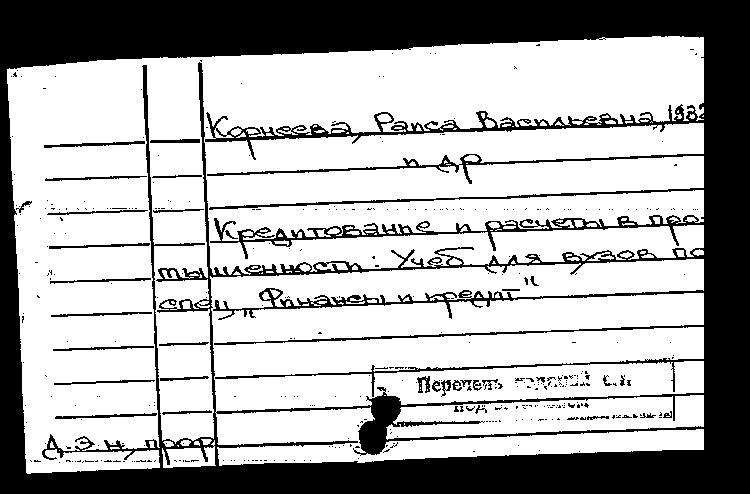 Корнеева, Раиса Васильевна, 1932
и др
Кредитование и расчеты в про-
мышленности: Учеб для вузов по
спец „Финансы и кредит"
Перечень изданий см.
под
Д.э.н, проф